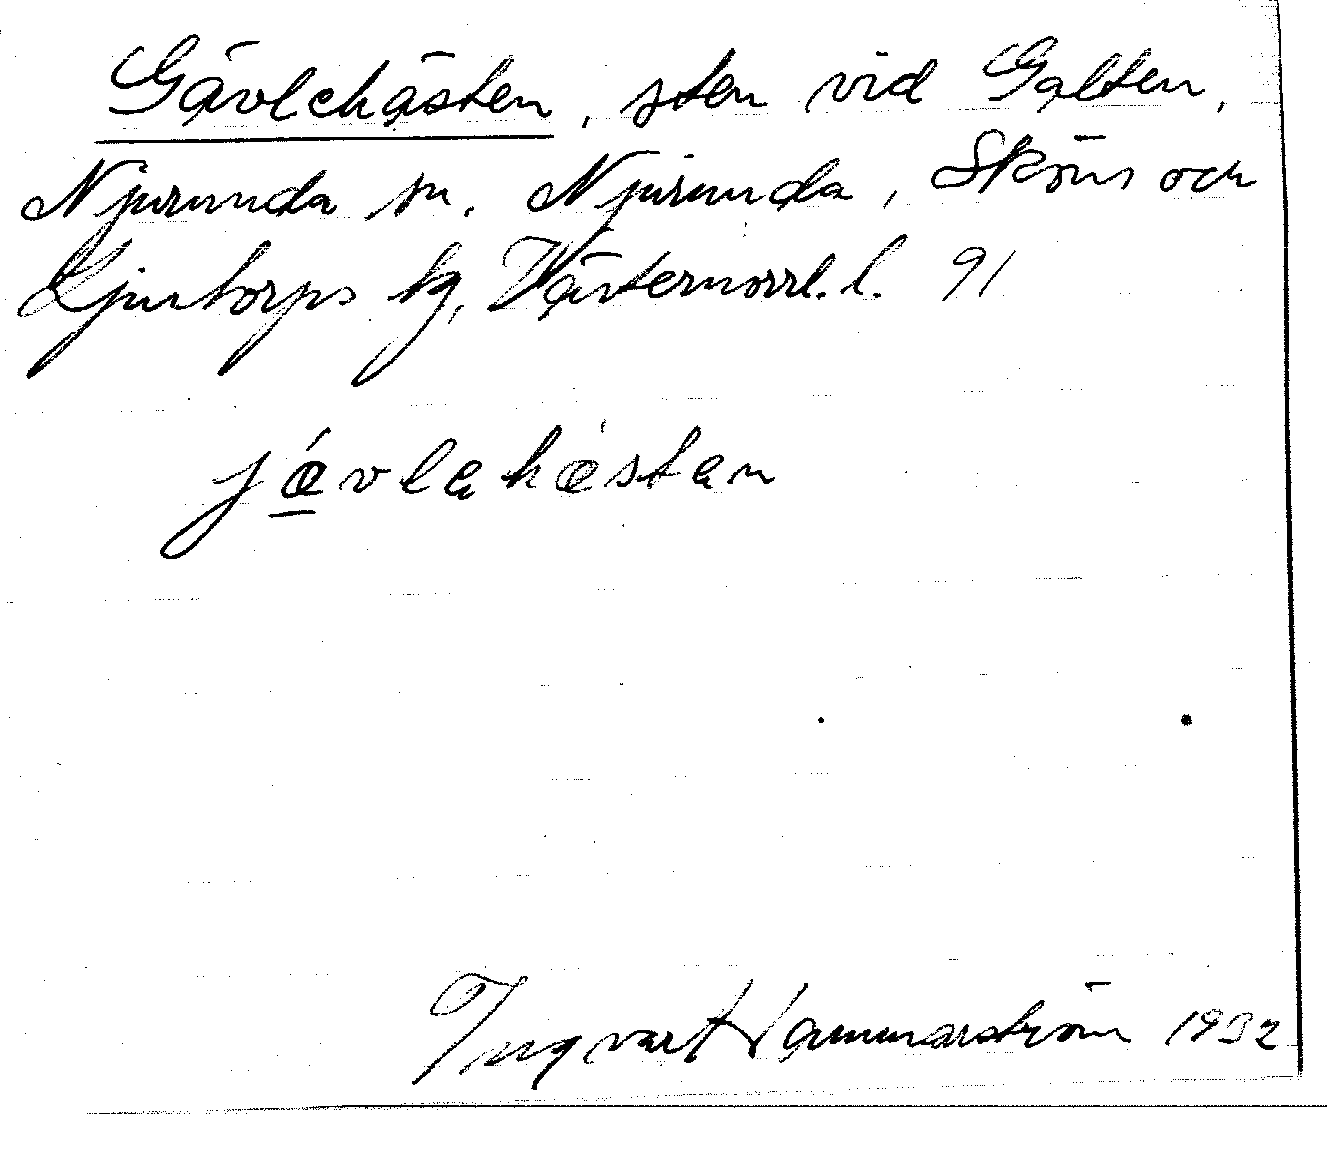 Gävlehästen, sten vid Galten,
Njurunda sn. Njurunda, Sköns och
Ljustorps tg, Västernorrl. l. 91
jǽvlahæstan
Ingvar Hammarström 1932